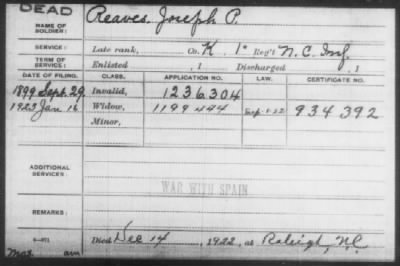 DEAD
NAME OF SOLDIER: Reaves, Joseph P.
SERVICE: Late rank, Co. K, 1st Reg't N.C. Inf.
TERM OF SERVICE: Enlisted , 1 Discharged , 1
DATE OF FILING. CLASS. APPLICATION NO. LAW. CERTIFICATE NO.
1899 Sept. 29 Invalid, 1236304
1923 Jan 16 Widow, 1199444 Sep-1-22 934392
Minor,
ADDITIONAL SERVICES:
WAR WITH SPAIN
REMARKS:
Died Dec 14, 1922, at Raleigh, N.C.